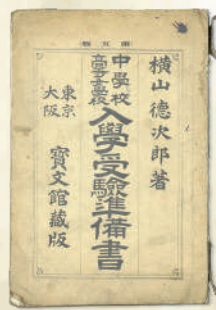 横山德次郎著
中學校
高等女學校
入學受驗準備書
東京
大阪
寶文館藏版